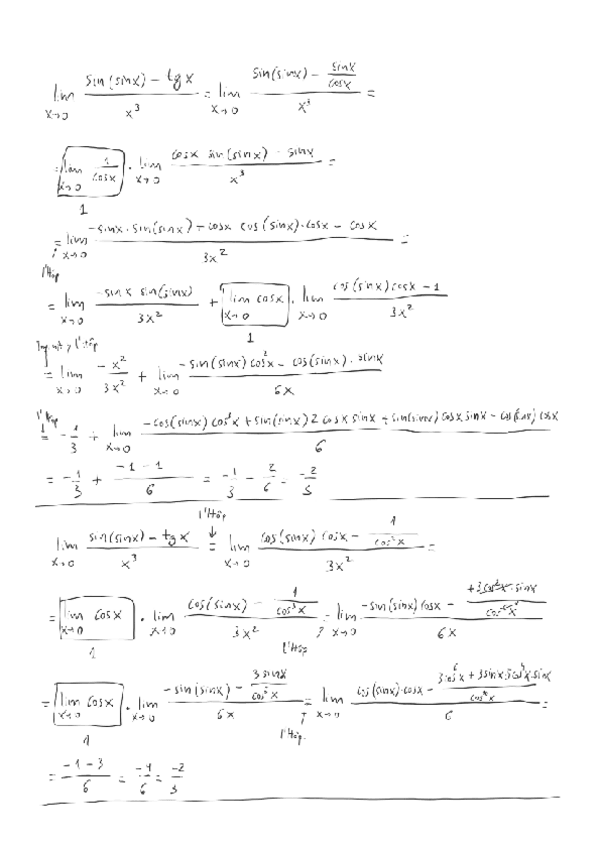 lim x→0 (sin(sinx) - tg x)/x³ = lim x→0 (sin(sinx) - sinx/cosx)/x³ =
= lim x→0 1/cosx · lim x→0 (cosx sin(sinx) - sinx)/x³ =
1
= lim x→0 (-sinx · sin(sinx) + cosx cos(sinx)·cosx - cosx)/3x² =
l'Hôp
= lim x→0 (-sinx sin(sinx))/3x² + lim cosx x→0 · lim x→0 (cos(sinx)cosx - 1)/3x²
1
l'Hôp
= lim x→0 -x²/3x² + lim x→0 (-sin(sinx)cos²x - cos(sinx)·sinx)/6x
l'Hôp
= -1/3 + lim x→0 (-cos(sinx)cos³x + sin(sinx)2cosx sinx + sin(sinx)cosx sinx - cos(sinx)cosx)/6
= -1/3 + (-1-1)/6 = -1/3 - 2/6 = -2/3
l'Hôp
lim x→0 (sin(sinx) - tg x)/x³ = lim x→0 (cos(sinx) cosx - 1/cos²x)/3x² =
= lim x→0 cosx · lim x→0 (cos(sinx) - 1/cos³x)/3x² = lim x→0 (-sin(sinx)cosx - +3cos²x·sinx/cos⁶x)/6x
1 l'Hôp
= lim x→0 cosx · lim x→0 (-sin(sinx) - 3 sinx/cos⁵x)/6x = lim x→0
1 l'Hôp.
= (-1-3)/6 = -4/6 = -2/3